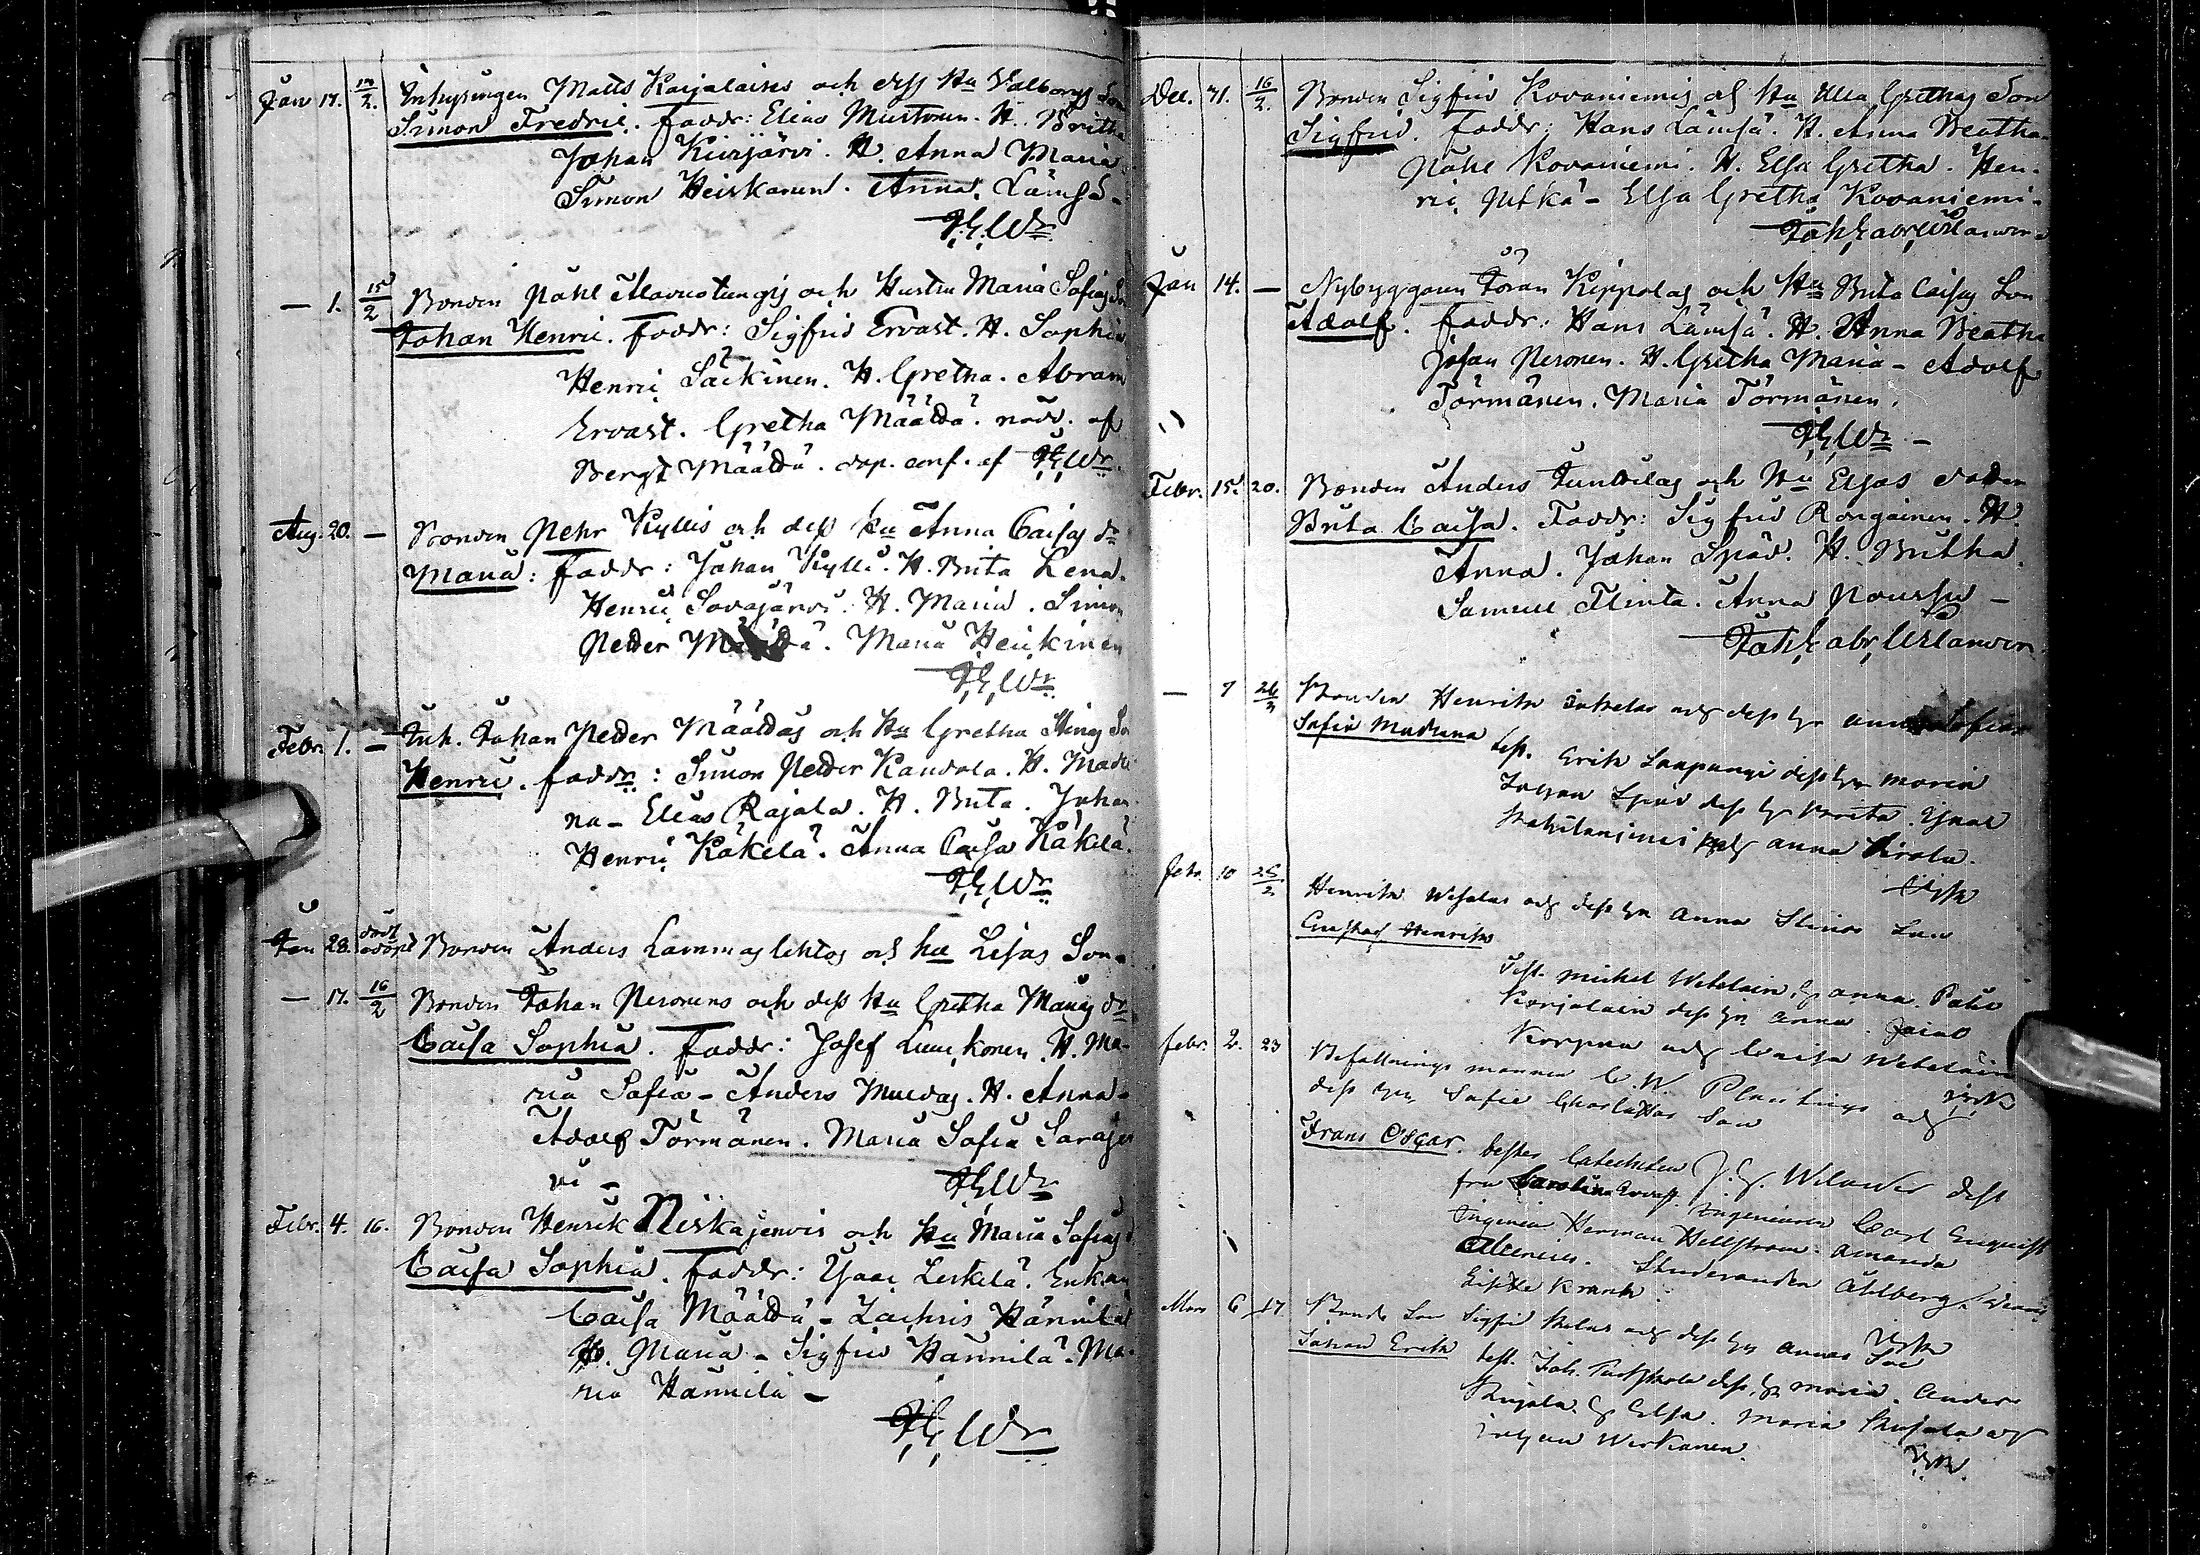 Jan 17. 13/2. Inhysingen Matts Karjalaines och dess Hu Valborgs Son
Simon Fredric. Faddr: Elias Mustonen. H. Britha
Johan Kurjärvi. H. Anna Maria
Simon Heiskanen. Anna Lämsä -
JGWr
— 1. 15/2 Bonden Påhl Mavnotungis och Hustru Maria Sofias
Johan Henric. Faddr: Sigfrid Ervast. H. Sophia
Henric Säckinen. H. Gretha. Abram
Ervast. Gretha Määttä. nöd. af
Bergt Määttä. dop. conf. af JGWr.
Aug. 20. — Bonden Pehr Kyllis och dess hu Anna Caisas dr
Maria: Faddr: Johan Kylli. H. Brita Lena.
Henric Sovajärvi. H. Maria. Simon
Petter. Maria Heikinen
JGWr
Febr. 1. — Inh. Johan Petter Määttäs och Hu Gretha Stinas
Henric. faddr: Simon Petter Kandola. H. Madle
na - Elias Rajala. H. Brita. Johan
Henric Käkelä. Anna Caisa Käkelä.
JGWr
Jan 28. död odöpt Bonden Anders Lammaslehtos och hu Lisas Son
— 17. 16/2 Bonden Johan Peronens och dess Hu Gretha Marias dr
Caisa Sophia. Faddr: Josef Luukonen. H. Ma-
ria Safia - Anders. H. Anna -
Adolf Törmänen. Maria Sofia Saraje
vi -
JGWr
Febr. 4. 16. Bonden Henrik Niskajervis och Hu Maria Safias
Caisa Sophia. Faddr: Isac Leskelä. Enkan
Caisa Määttä - Zachris Hännilä
H. Maria - Sigfrid Hännilä. Ma-
ria Hännilä -
JGWr
Dec. 31. 16/2. Bonden Sigfrid Kovaniemis och Hu Ulla Grethas Son
Sigfrid. Faddr: Hans Lämsä. H. Anna Beatha
Påhl Kovaniemi. H. Elsa Gretha. Hen-
ric Pitkä - Elsa Gretha Kovaniemi -
Joh Gabr Wilander
Jan 14. — Nybyggaren Jöran Kippolas och Hu Brita Caisas Son
Adolf. Faddr: Hans Lämsä. H. Anna Beatha
Johan Peronen. H. Gretha Maria - Adolf
Törmänen. Maria Törmänen.
JGWr -
Febr. 15. 20. Bonden Anders Junttilas och Hu Elsas dotter
Brita Caisa. Faddr: Sigfrid Rongainen. H.
Anna. Johan Späd. H. Britha.
Samuel Flinta. Anna Poussu -
Joh Gabr Wilander
— 7 26/2 Bonden Henrik och dess hu Anna Sofias
Sofia Madlena
test. Erik Laapungi dess hu Maria
Johan Späd dess hu Brita. Isaac
och Anna Sirola.
Febr. 10 25/2 Henrik och dess hu Anna Stinas Son
Gustaf Henrik
Test. Michel Wetelain, hu Anna. Påhl
Karjalain dess hu Anna. Jacob
Korpua och Caisa Wetelain
Febr. 2. 23 Befallningsmannen C. W. Plantings och
dess hu Sofie Charlottas Son
Frans Oscar. test Catecheten J. G. Wilander dess
fru Carolina Ervast. Ingenieuren Carl Enquist
Ingenieur Herman Hellstrom. Amanda
Alcenius. Studeranden Ahlberg.
Lisette Krank.
Mars 6 17 Bonde Son Sigfrid och dess hu Annas Son
Johan Erik
test. Joh. dess hu Maria. Anders
Rajala. hu Elsa. Maria Rajala och
Johan Wirkanen.